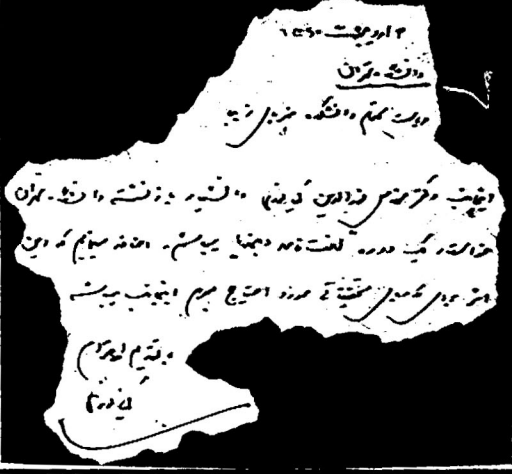 اردیبهشت
دانشگاه تهران
ریاست محترم دانشکده هنرهای زیبا
اینجانب دکتر مهندس دانشیار بازنشسته دانشگاه تهران
خواستار یک دوره لغت نامه دهخدا میباشم. اضافه مینمایم که این
اثر برای کارهای مورد احتیاج مبرم اینجانب میباشد
با تقدیم احترام